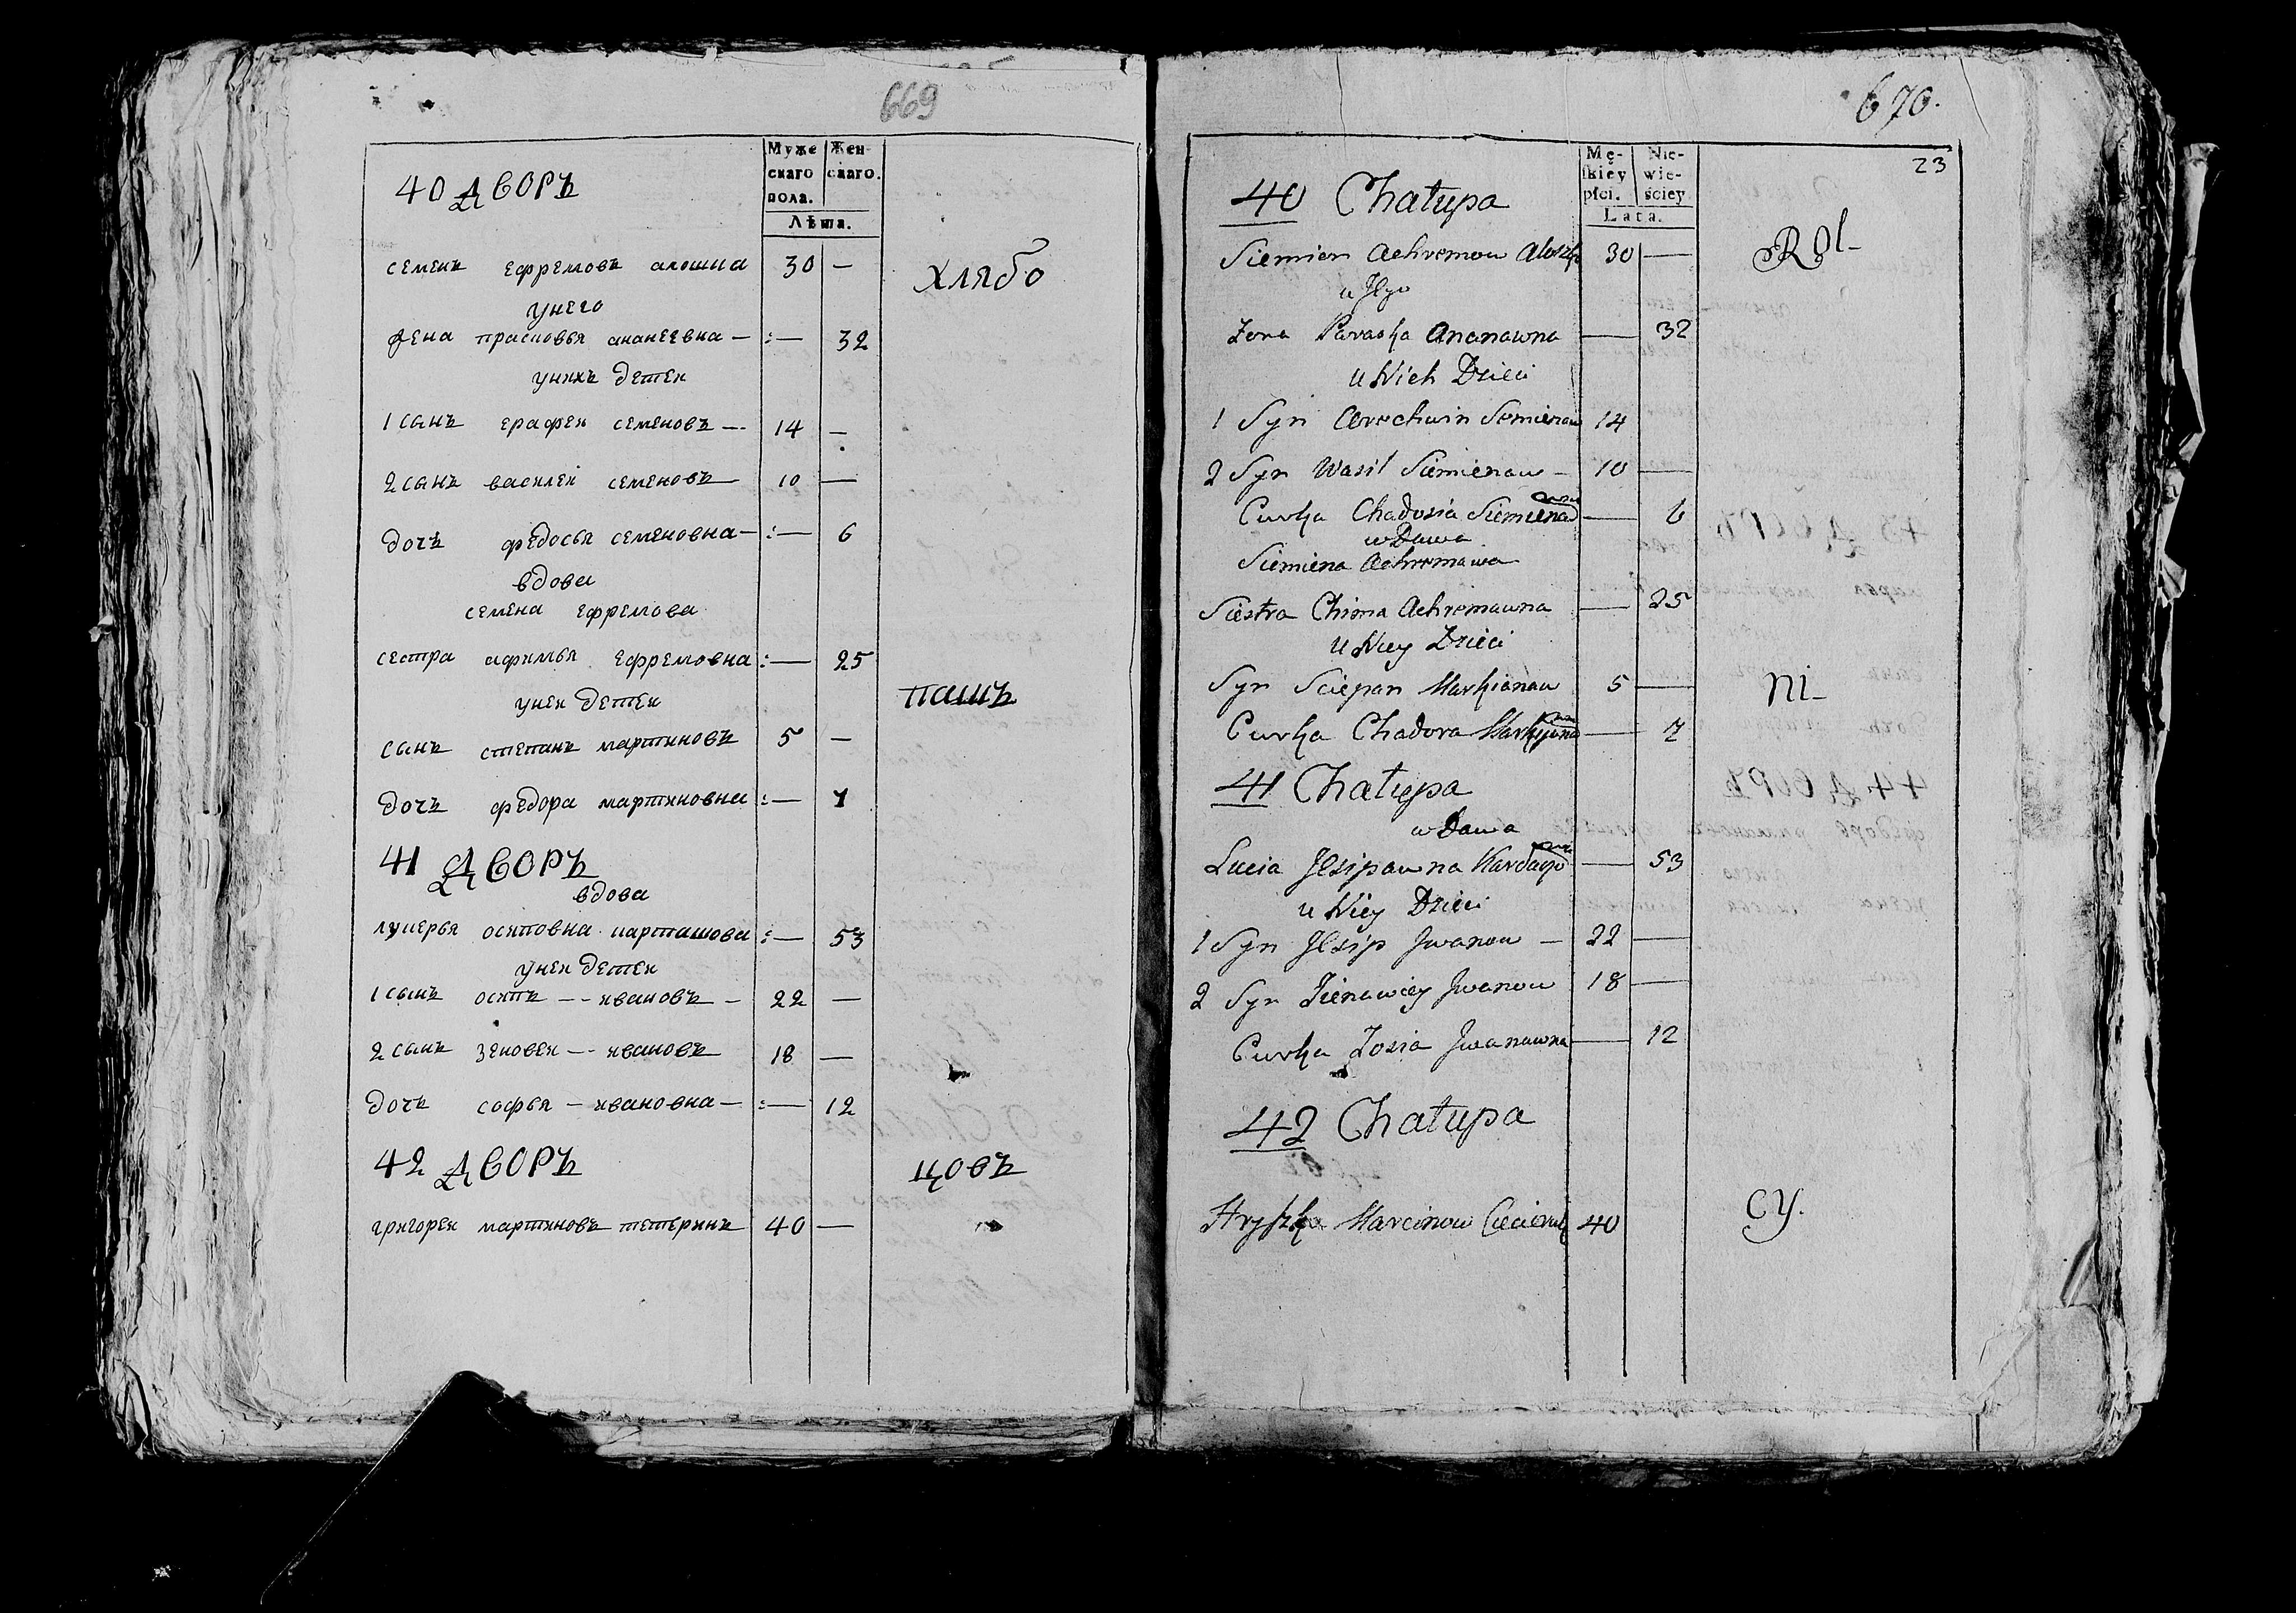 669
Муже Жен-
скаго скаго.
пола.
Лѣта.
40 ДВОРЪ
семенъ ефремовъ алошка 30 —
хлябо
унего
жена прасковья ананеевна — :— 32
унихъ детеи
1 сынъ ерафеи семеновъ — 14 —
2 сынъ василеи семеновъ 10 —
дочъ федосья семеновна — :— 6
вдова
семена ефремова
сестра афимья ефремовна :— 25
унеи детеи
пашъ
сынъ степанъ мартиновъ 5 —
дочъ федора мартиновна :— 7
41 ДВОРЪ
вдова
лукерья осиповна карташова :— 53
унеи детеи
1 сынъ осипъ — ивановъ — 22 —
2 сынъ зеновеи — ивановъ 18 —
дочъ софья — ивановна — :— 12
42 ДВОРЪ
цовъ
григореи мартиновъ тетеринъ 40 —
670.
23
Mę- Nie-
ſkiey wie-
płci. ściey
Lata.
40 Chałupa
Siemien Achremow 30 —
Rol-
u Jego
Żona Paraska Ananawna — 32
u Nich Dzieci
1 Syn Siemienaw 14
2 Syn Wasil Siemienaw — 10 —
Curka Chadosia Siemienawna — 6
wDawa
Siemiena Achremawa
Siestra Chima Achremawna — 25
u Niey Dzieci
Syn Sciepan Markianaw 5 —
ni-
Curka Chadora — 7
41 Chałupa
wDawa
Lucia Jesipawna — 53
u Niey Dzieci
1 Syn Jesip Jwanow — 22 —
2 Syn Zienawiey Jwanow 18 —
Curka Zosia Jwanawna — 12
42 Chałupa
cy.
Hryszka Marcinow 40